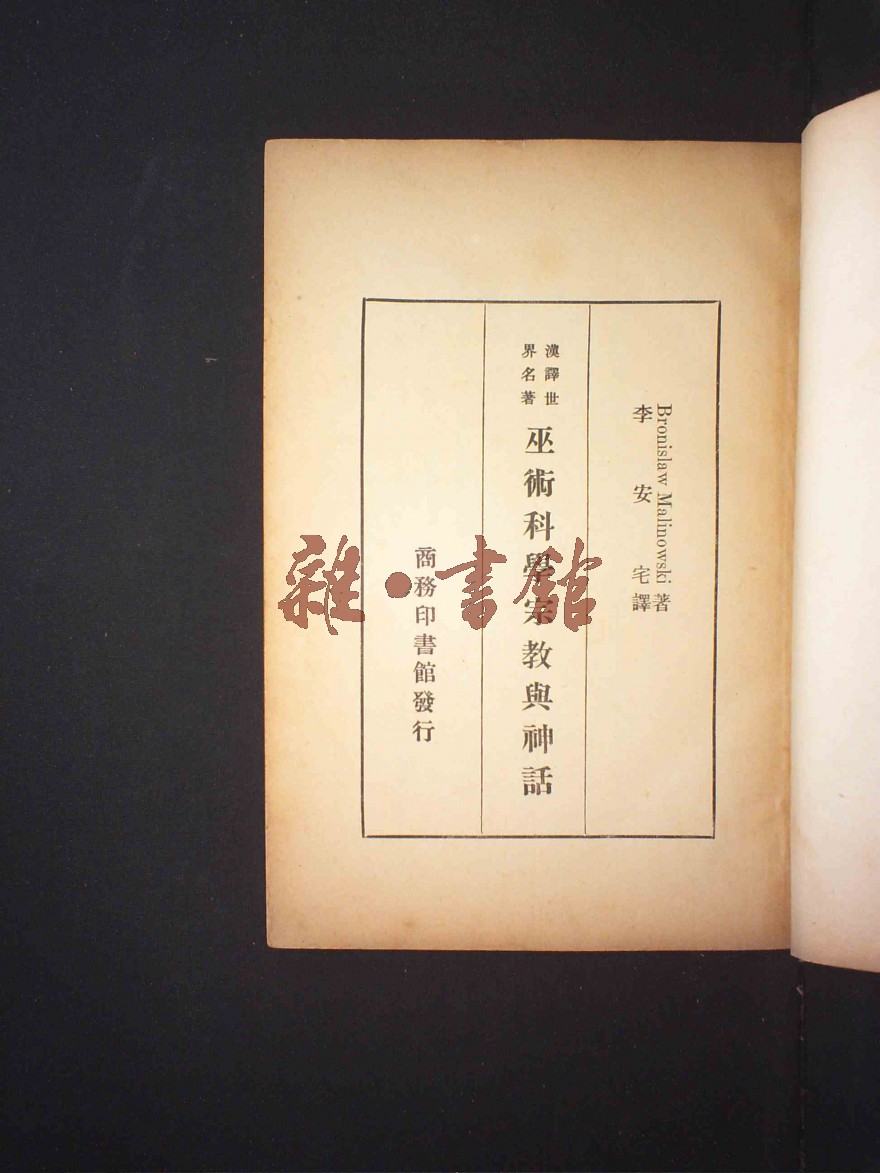 Bronislaw Malinowski 著
李安宅譯
漢譯世
界名著
巫術科學宗教與神話
商務印書館發行
雜·書館